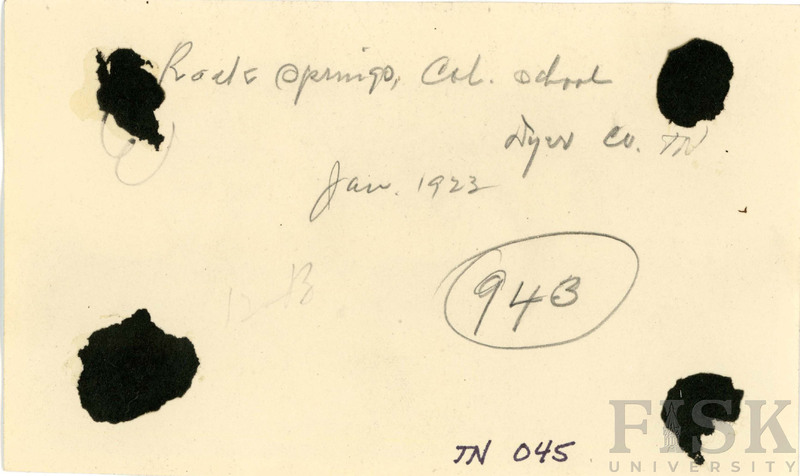 Springs, Col. School
Dyer Co. TN
Jan. 1923
12-B
94B
TN 045
FISK
UNIVERSITY